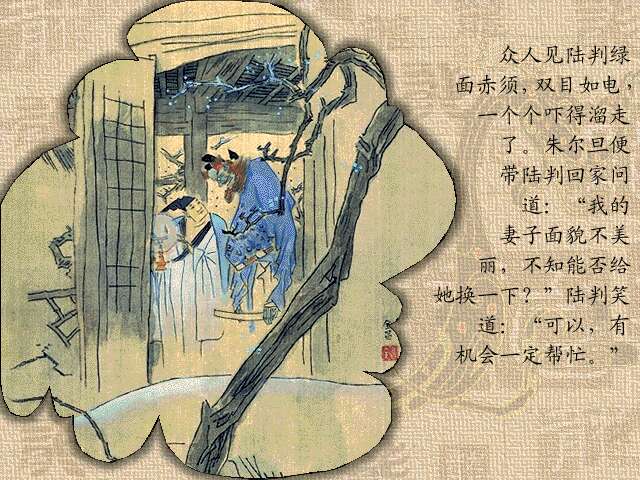 众人见陆判绿
面赤须，双目如电，
一个个吓得溜走
了。朱尔旦便
带陆判回家问
道：“我的
妻子面貌不美
丽，不知能否给
她换一下？”陆判笑
道：“可以，有
机会一定帮忙。”